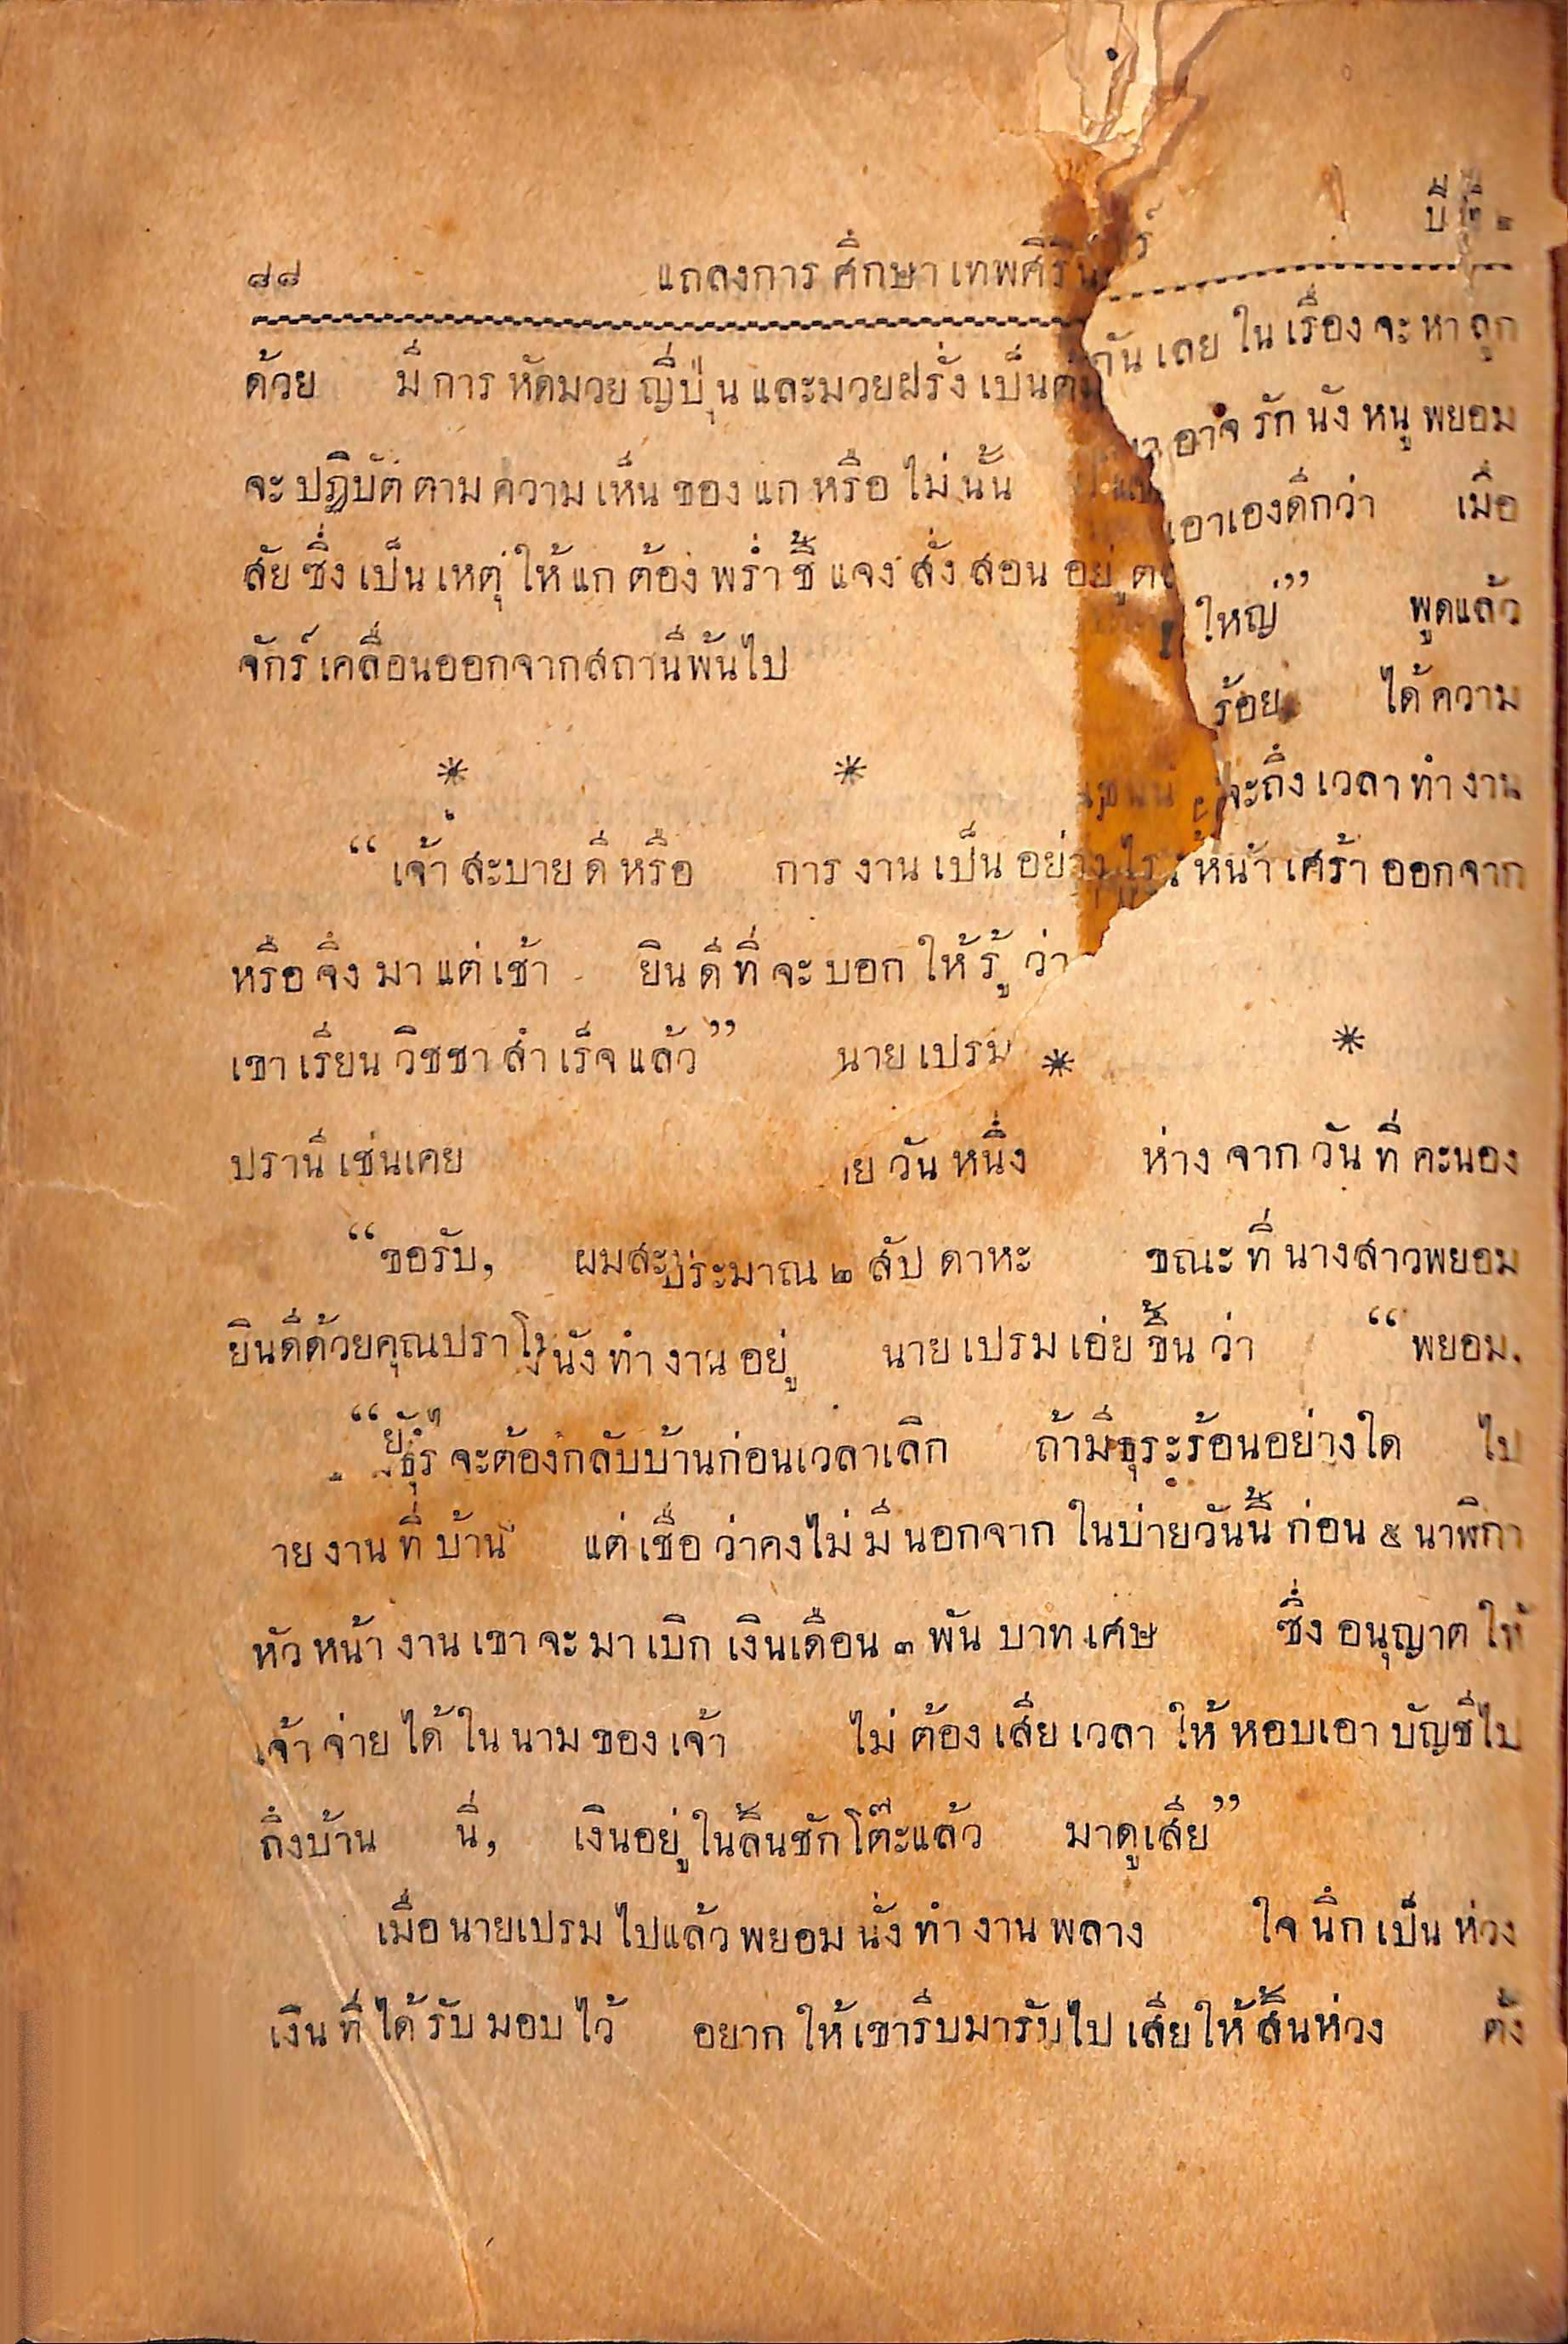 ๘๘ แถลงการ ศึกษา เทพศิริ ปีที่ ๒
ด้วย มี การ หัดมวย ญี่ปุ่น และมวยฝรั่ง เป็น กัน เลย ใน เรื่อง จะ หา ลูก
จะ ปฏิบัติ ตาม ความ เห็น ของ แก หรือ ไม่ นั้น อาจ รัก นัง หนู พยอม
สัย ซึ่ง เป็น เหตุ ให้ แก ต้อง พร่ำ ชี้ แจง สั่ง สอน อยู่ เอาเองดีกว่า เมื่อ
จักร์ เคลื่อนออกจากสถานีพ้นไป ใหญ่” พูดแล้ว
ร้อย ได้ ความ
* * จะถึง เวลา ทำ งาน
“ เจ้า สะบาย ดี หรือ การ งาน เป็น อย่างไร หน้า เศร้า ออกจาก
หรือ จึ่ง มา แต่ เช้า ยิน ดี ที่ จะ บอก ให้ รู้ ว่า
เขา เรียน วิชชา สำ เร็จ แล้ว” นาย เปรม * *
ปรานี เช่นเคย วัน หนึ่ง ห่าง จาก วัน ที่ คะนอง
“ขอรับ, ผมสะ ประมาณ ๒ สัป ดาหะ ขณะ ที่ นางสาวพยอม
ยินดีด้วยคุณปราโม นั่ง ทำ งาน อยู่ นาย เปรม เอ่ย ขึ้น ว่า “ พยอม,
“ จะต้องกลับบ้านก่อนเวลาเลิก ถ้ามีธุระร้อนอย่างใด ไป
าย งาน ที่ บ้าน แต่ เชื่อ ว่าคงไม่ มี นอกจาก ในบ่ายวันนี้ ก่อน ๕ นาฬิกา
หัว หน้า งาน เขา จะ มา เบิก เงินเดือน ๓ พัน บาท เศษ ซึ่ง อนุญาต ให้
เจ้า จ่าย ได้ ใน นาม ของ เจ้า ไม่ ต้อง เสีย เวลา ให้ หอบเอา บัญชีไป
ถึงบ้าน นี่, เงินอยู่ ในลิ้นชักโต๊ะแล้ว มาดูเสีย”
เมื่อ นายเปรม ไปแล้ว พยอม นั่ง ทำ งาน พลาง ใจ นึก เป็น ห่วง
เงิน ที่ ได้ รับ มอบ ไว้ อยาก ให้ เขารีบมารับไป เสียให้ สิ้นห่วง ตั้ง